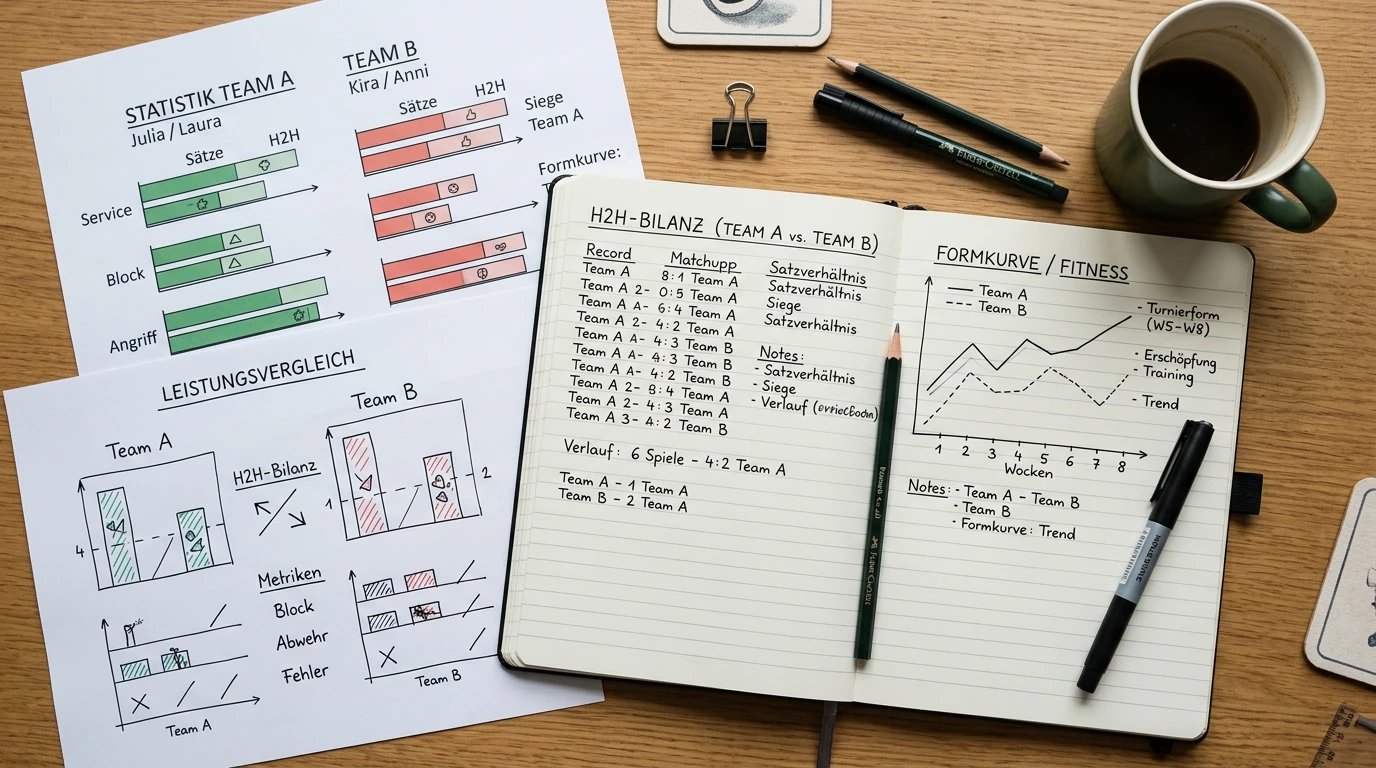 STATISTIK TEAM A
Julia / Laura
Sätze
H2H
Service
Block
Angriff
TEAM B
Kira / Anni
Sätze
H2H
Siege
Team A
Formkurve:
LEISTUNGSVERGLEICH
Team A
4
H2H-Bilanz
Team B
1
2
Metriken
Block
Abwehr
Fehler
Team A
Team B
H2H-BILANZ (TEAM A vs. TEAM B)
Record Matchupp Satzverhältnis
Team A 8:1 Team A Satzverhältnis
Team A 2- 0:5 Team A Siege
Team A A- 6:4 Team A Satzverhältnis
Team A 2- 4:2 Team A
Team A A- 4:3 Team B
Team A A- 4:3 Team B
Team A A- 4:2 Team B
Team A 2- 8:4 Team A
Team A 2- 4:3 Team A
Team A 3- 4:2 Team B
Notes:
- Satzverhältnis
- Siege
- Verlauf
Verlauf: 6 Spiele - 4:2 Team A
Team A - 1 Team A
Team B - 2 Team A
FORMKURVE / FITNESS
Team A
Team B
- Turnierform
(W5-W8)
- Erschöpfung
- Training
- Trend
1 2 3 4 5 6 7 8
Wocken
Notes: - Team A - Team B
- Team B
- Formkurve: Trend